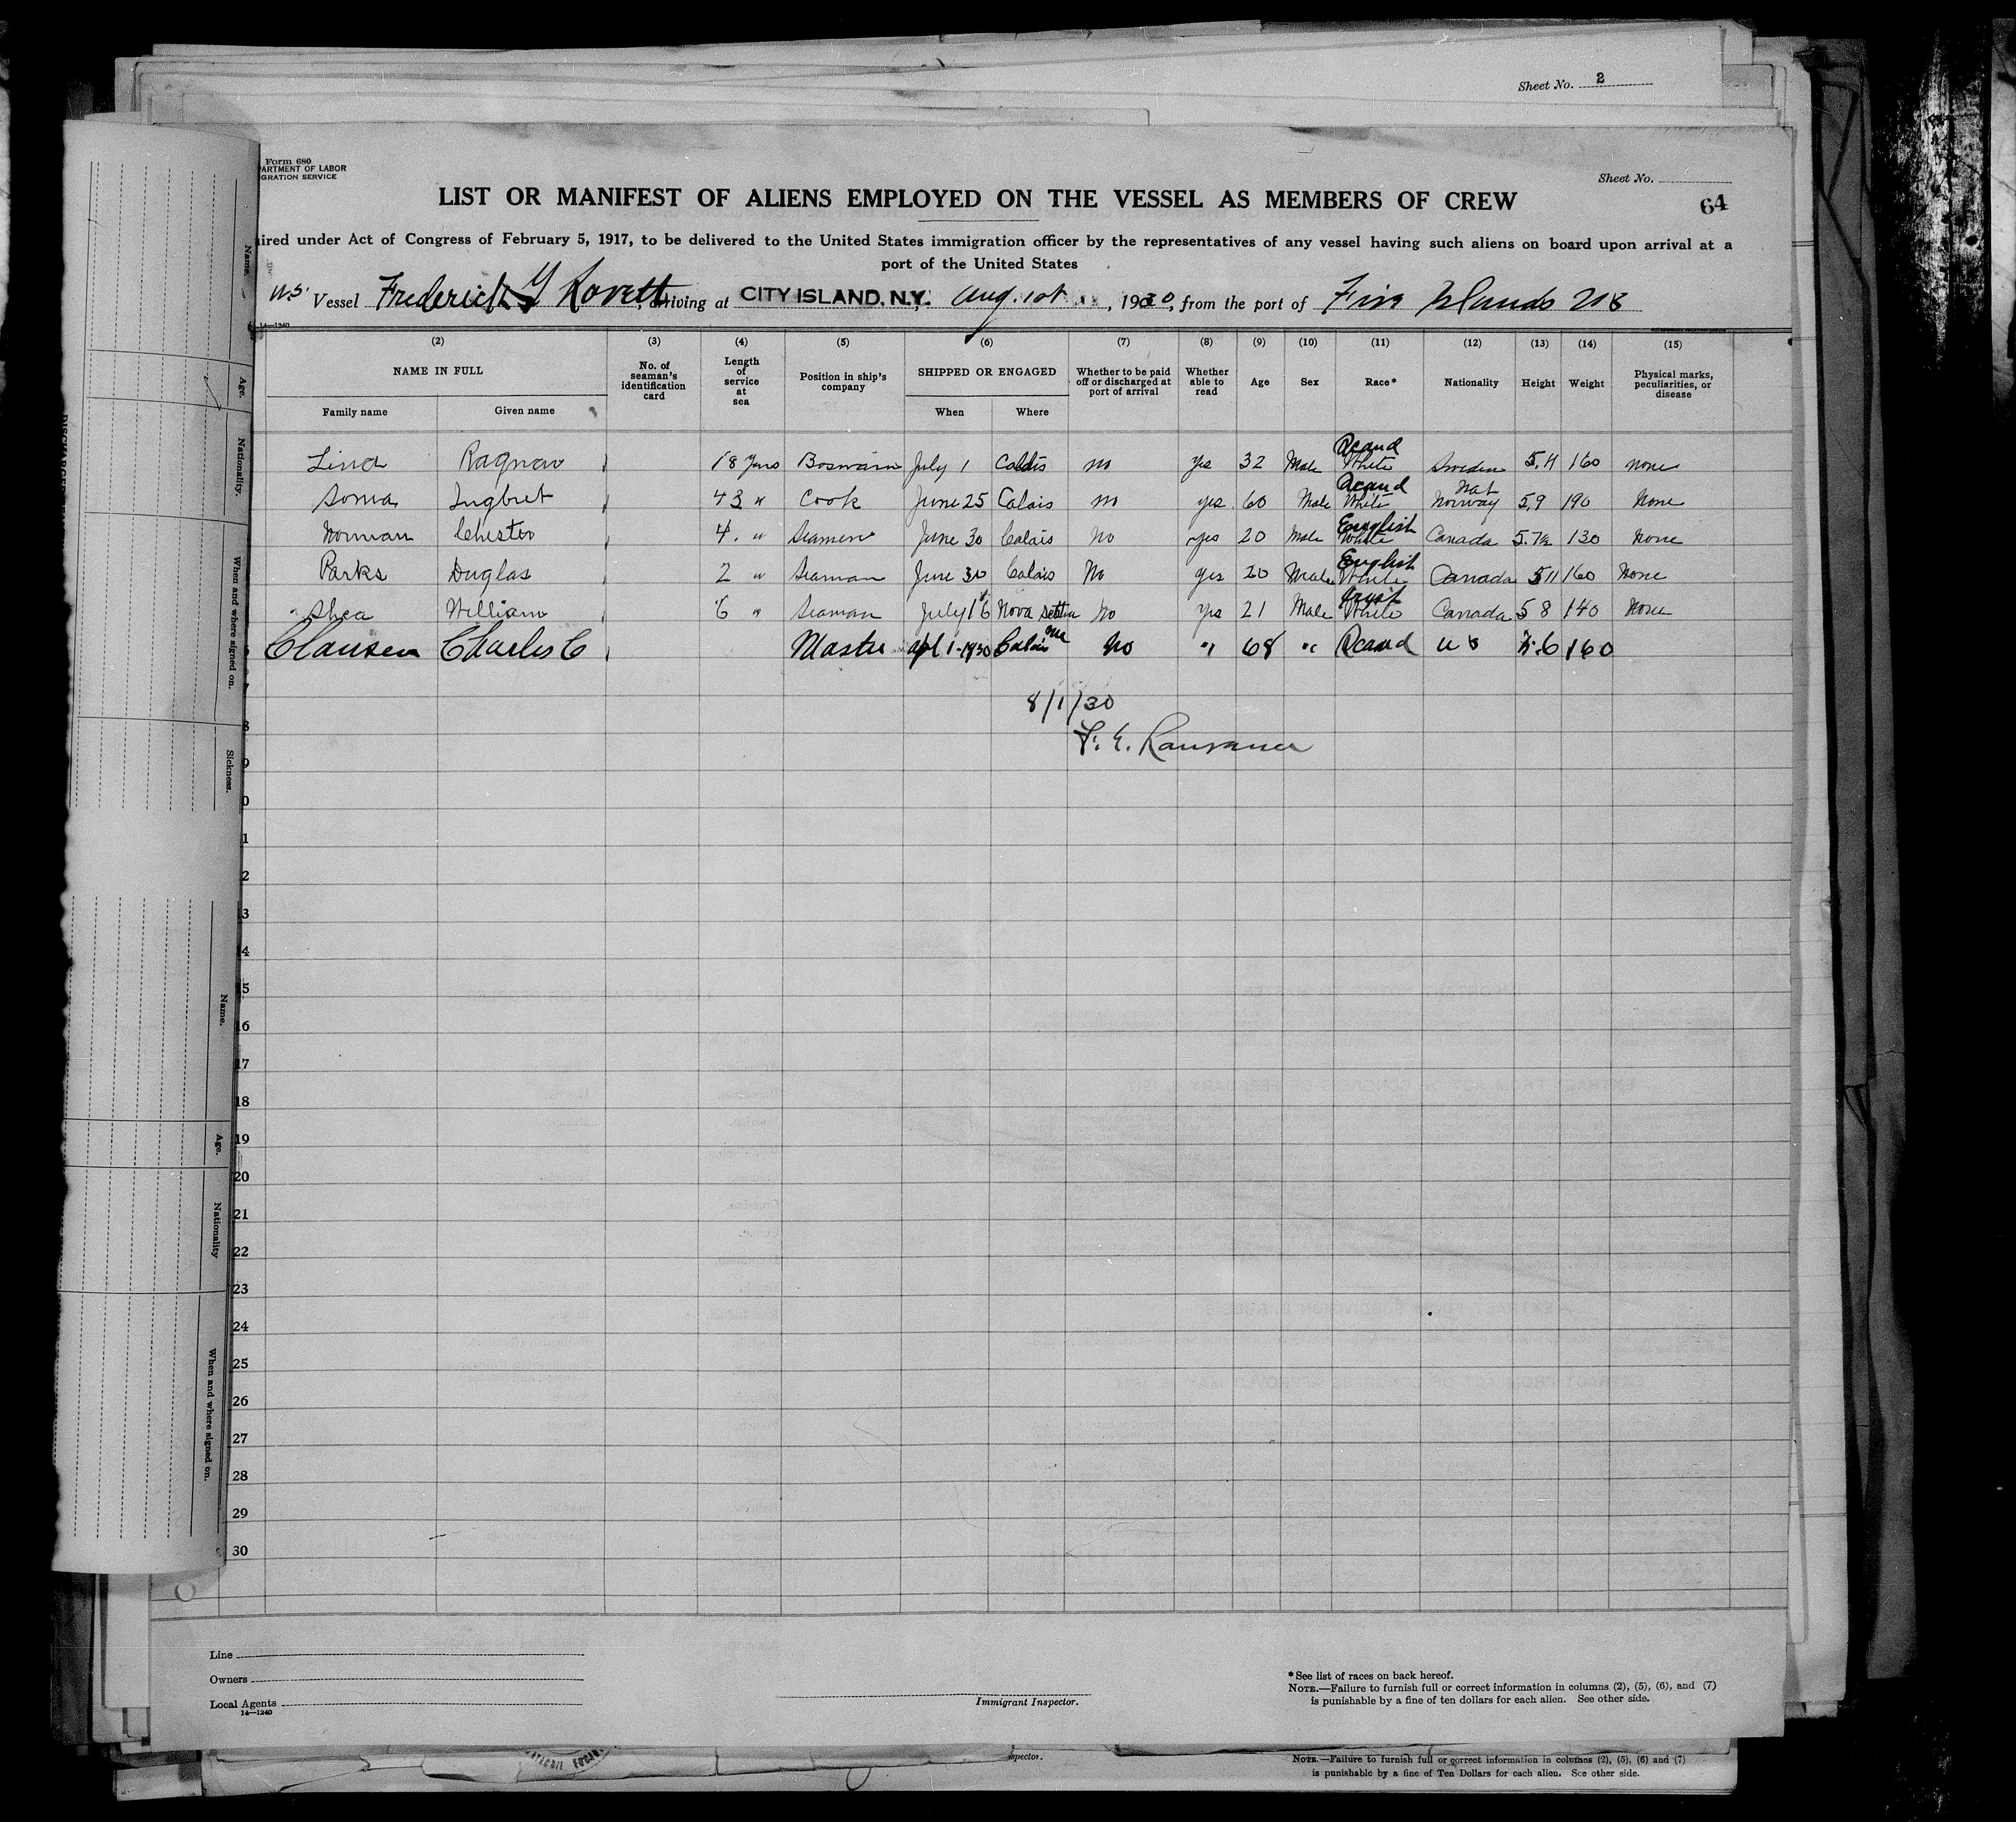 Sheet No. 2
Form 680
PARTMENT OF LABOR
IGRATION SERVICE
Sheet No.
64
LIST OR MANIFEST OF ALIENS EMPLOYED ON THE VESSEL AS MEMBERS OF CREW
ired under Act of Congress of February 5, 1917, to be delivered to the United States immigration officer by the representatives of any vessel having such aliens on board upon arrival at a
port of the United States
Vessel Frederick Lovett, arriving at CITY ISLAND, N.Y. Aug. 1st, 1930, from the port of Five Islands
14—1240
(2) (3) (4) (5) (6) (7) (8) (9) (10) (11) (12) (13) (14) (15)
NAME IN FULL
Family name Given name
No. of seaman's identification card
Length of service at sea
Position in ship's company
SHIPPED OR ENGAGED
When Where
Whether to be paid off or discharged at port of arrival
Whether able to read
Age
Sex
Race*
Nationality
Height
Weight
Physical marks, peculiarities, or disease
Lind Ragnar 18 Years July 1 Calais no yes 32 Male Scand White Sweden 5.11 160 none
Soma Ingbret 43 " Cook June 25 Calais no yes 60 Male Scand White Norway 5.9 190 None
Norman Chester 4 " Seamen June 30 Calais No yes 20 Male English White Canada 5.7½ 130 None
Parks Duglas 2 " Seaman June 30 Calais No yes 20 Male English White Canada 5 11 160 None
Shea William 6 " Seaman July 16 Nova No Yes 21 Male White Canada 5 8 140 None
Clausen Charles C Master Apl 1-1930 Calais Me No " 68 " Scand U S 160
8/1/30
7
8
9
0
1
2
13
14
15
16
17
18
19
20
21
22
23
24
25
26
27
28
29
30
Name.
Age.
Nationality.
When and where signed on.
Sickness.
Name.
Age.
Nationality
When and where signed on.
Line
Owners
Local Agents
14—1240
Immigrant Inspector.
*See list of races on back hereof.
NOTE.—Failure to furnish full or correct information in columns (2), (5), (6), and (7)
is punishable by a fine of ten dollars for each alien. See other side.
spector.
NOTE.—Failure to furnish full or correct information in columns (2), (5), (6) and (7)
is punishable by a fine of Ten Dollars for each alien. See other side.